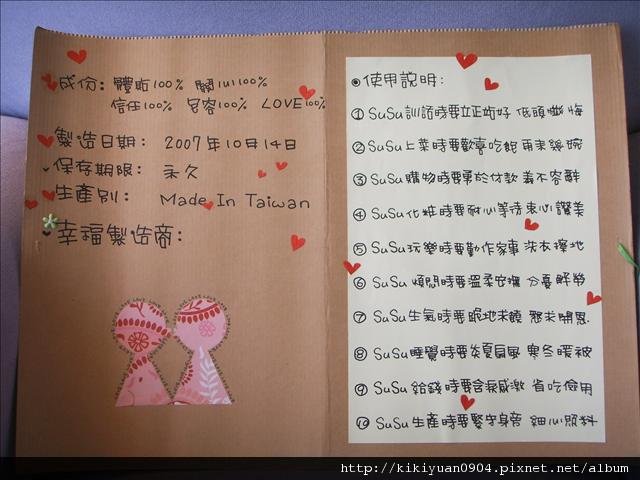 成份: 體貼100% 關心100%
信任100% 包容100% LOVE100%
製造日期: 2007年10月14日
保存期限: 永久
生產別: Made In Taiwan
幸福製造商:
◉使用說明:
① SuSu訓話時要立正站好 低頭懺悔
② SuSu上菜時要歡喜吃飽 再來幾碗
③ SuSu購物時要勇於付款 義不容辭
④ SuSu化粧時要耐心等待 衷心讚美
⑤ SuSu玩樂時要勤作家事 洗衣擦地
⑥ SuSu煩悶時要溫柔安撫 分憂解勞
⑦ SuSu生氣時要跪地求饒 懇求開恩
⑧ SuSu睡覺時要炎夏扇風 寒冬暖被
⑨ SuSu給錢時要含淚感激 省吃儉用
⑩ SuSu生產時要緊守身旁 細心照料
http://kikiyuan0904.pixnet.net/album